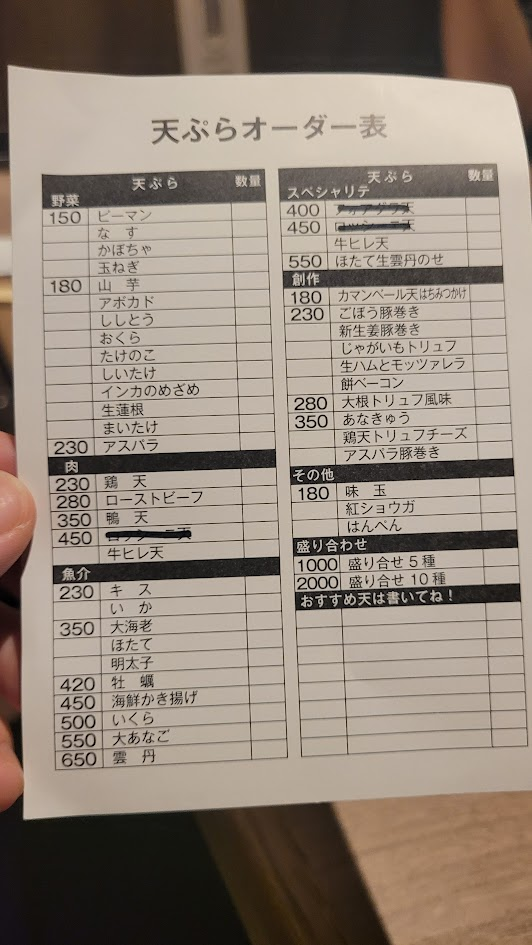 天ぷらオーダー表
天ぷら 数量
野菜
150 ピーマン
なす
かぼちゃ
玉ねぎ
180 山芋
アボカド
ししとう
おくら
たけのこ
しいたけ
インカのめざめ
生蓮根
まいたけ
230 アスパラ
肉
230 鶏天
280 ローストビーフ
350 鴨天
450
牛ヒレ天
魚介
230 キス
いか
350 大海老
ほたて
明太子
420 牡蠣
450 海鮮かき揚げ
500 いくら
550 大あなご
650 雲丹
天ぷら 数量
スペシャリテ
400
450
牛ヒレ天
550 ほたて生雲丹のせ
創作
180 カマンベール天はちみつかけ
230 ごぼう豚巻き
新生姜豚巻き
じゃがいもトリュフ
生ハムとモッツァレラ
餅ベーコン
280 大根トリュフ風味
350 あなきゅう
鶏天トリュフチーズ
アスパラ豚巻き
その他
180 味玉
紅ショウガ
はんぺん
盛り合わせ
1000 盛り合せ5種
2000 盛り合せ10種
おすすめ天は書いてね！